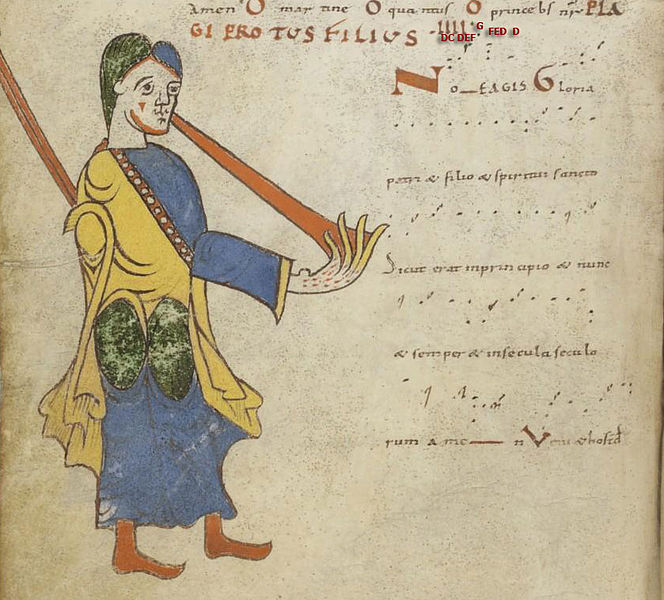 Amen O mar tine O quantus O princebs PLA
GI PROTUS FILIUS G
DC DEF FED D
No—EAGIS Gloria
patri & filio & spiritui sancto
Sicut erat inprincipio & nunc
& semper & insecula seculo
rum a me — n